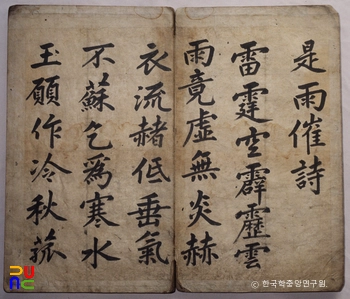 是雨催詩
雷霆空霹靂雲
雨竟虛無炎赫
衣流赭低垂氣
不蘇乞爲寒水
玉願作冷秋菰
© 한국학중앙연구원